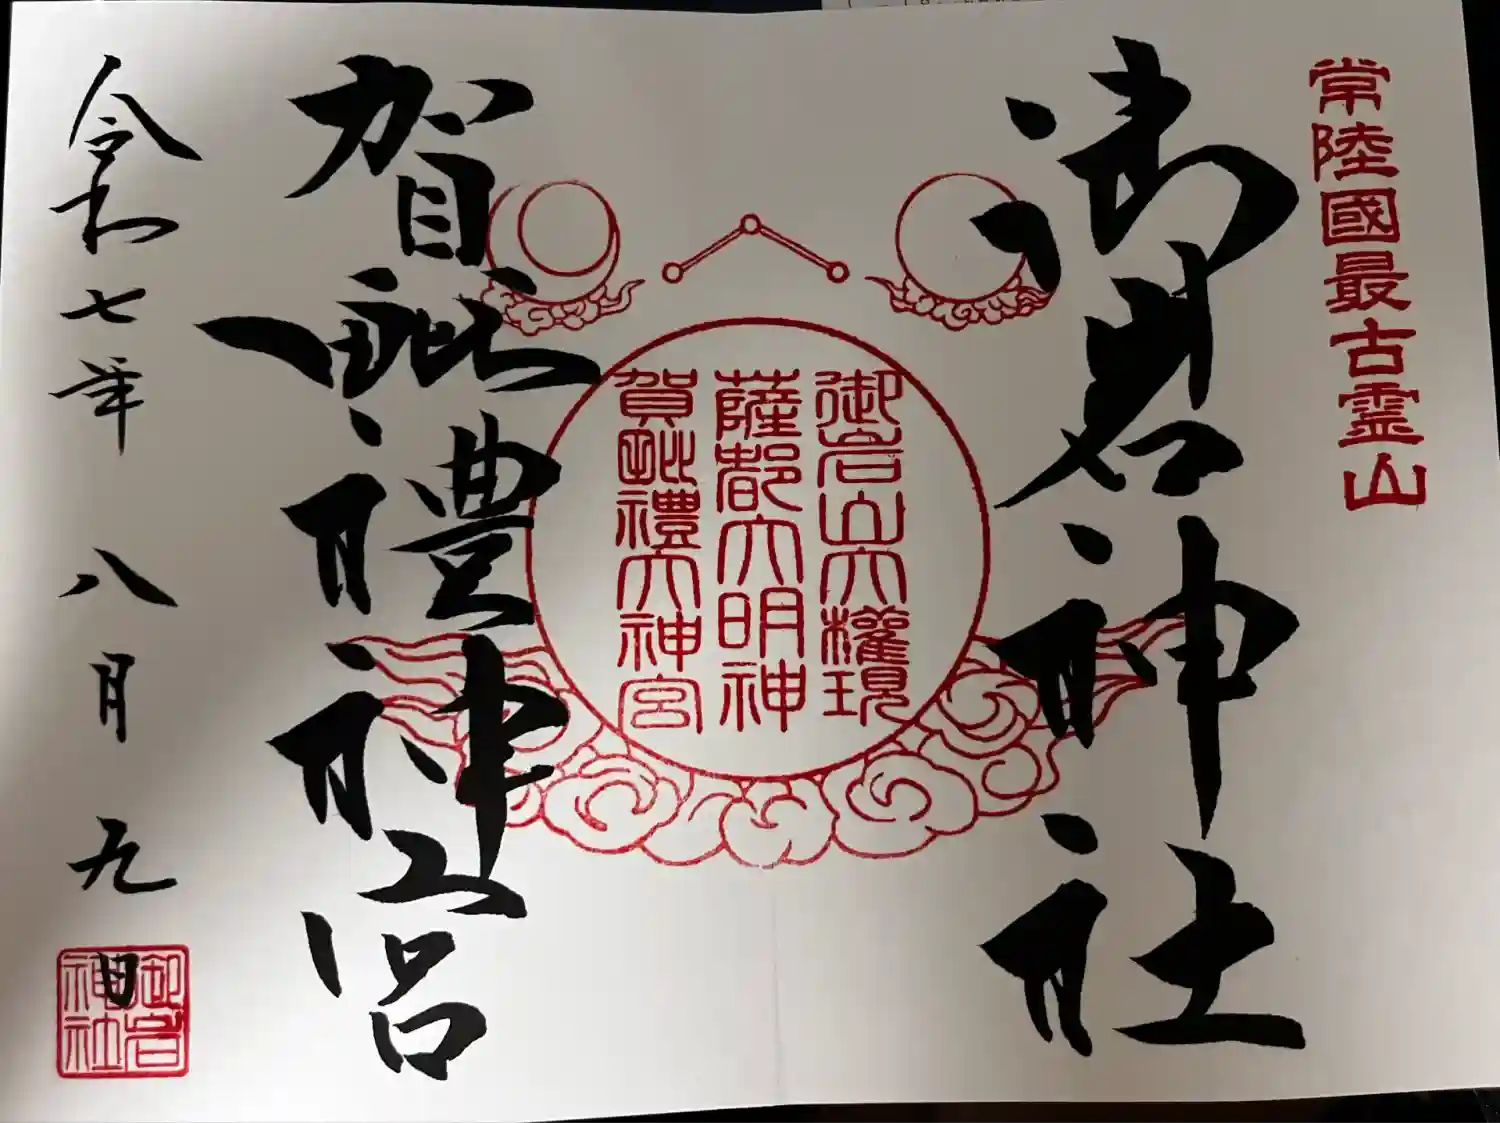 常陸國最古霊山
御岩神社
御岩山大権現
薩都大明神
賀毗禮大神宮
賀毗禮神宮
令和七年 八月九日
御岩
神社